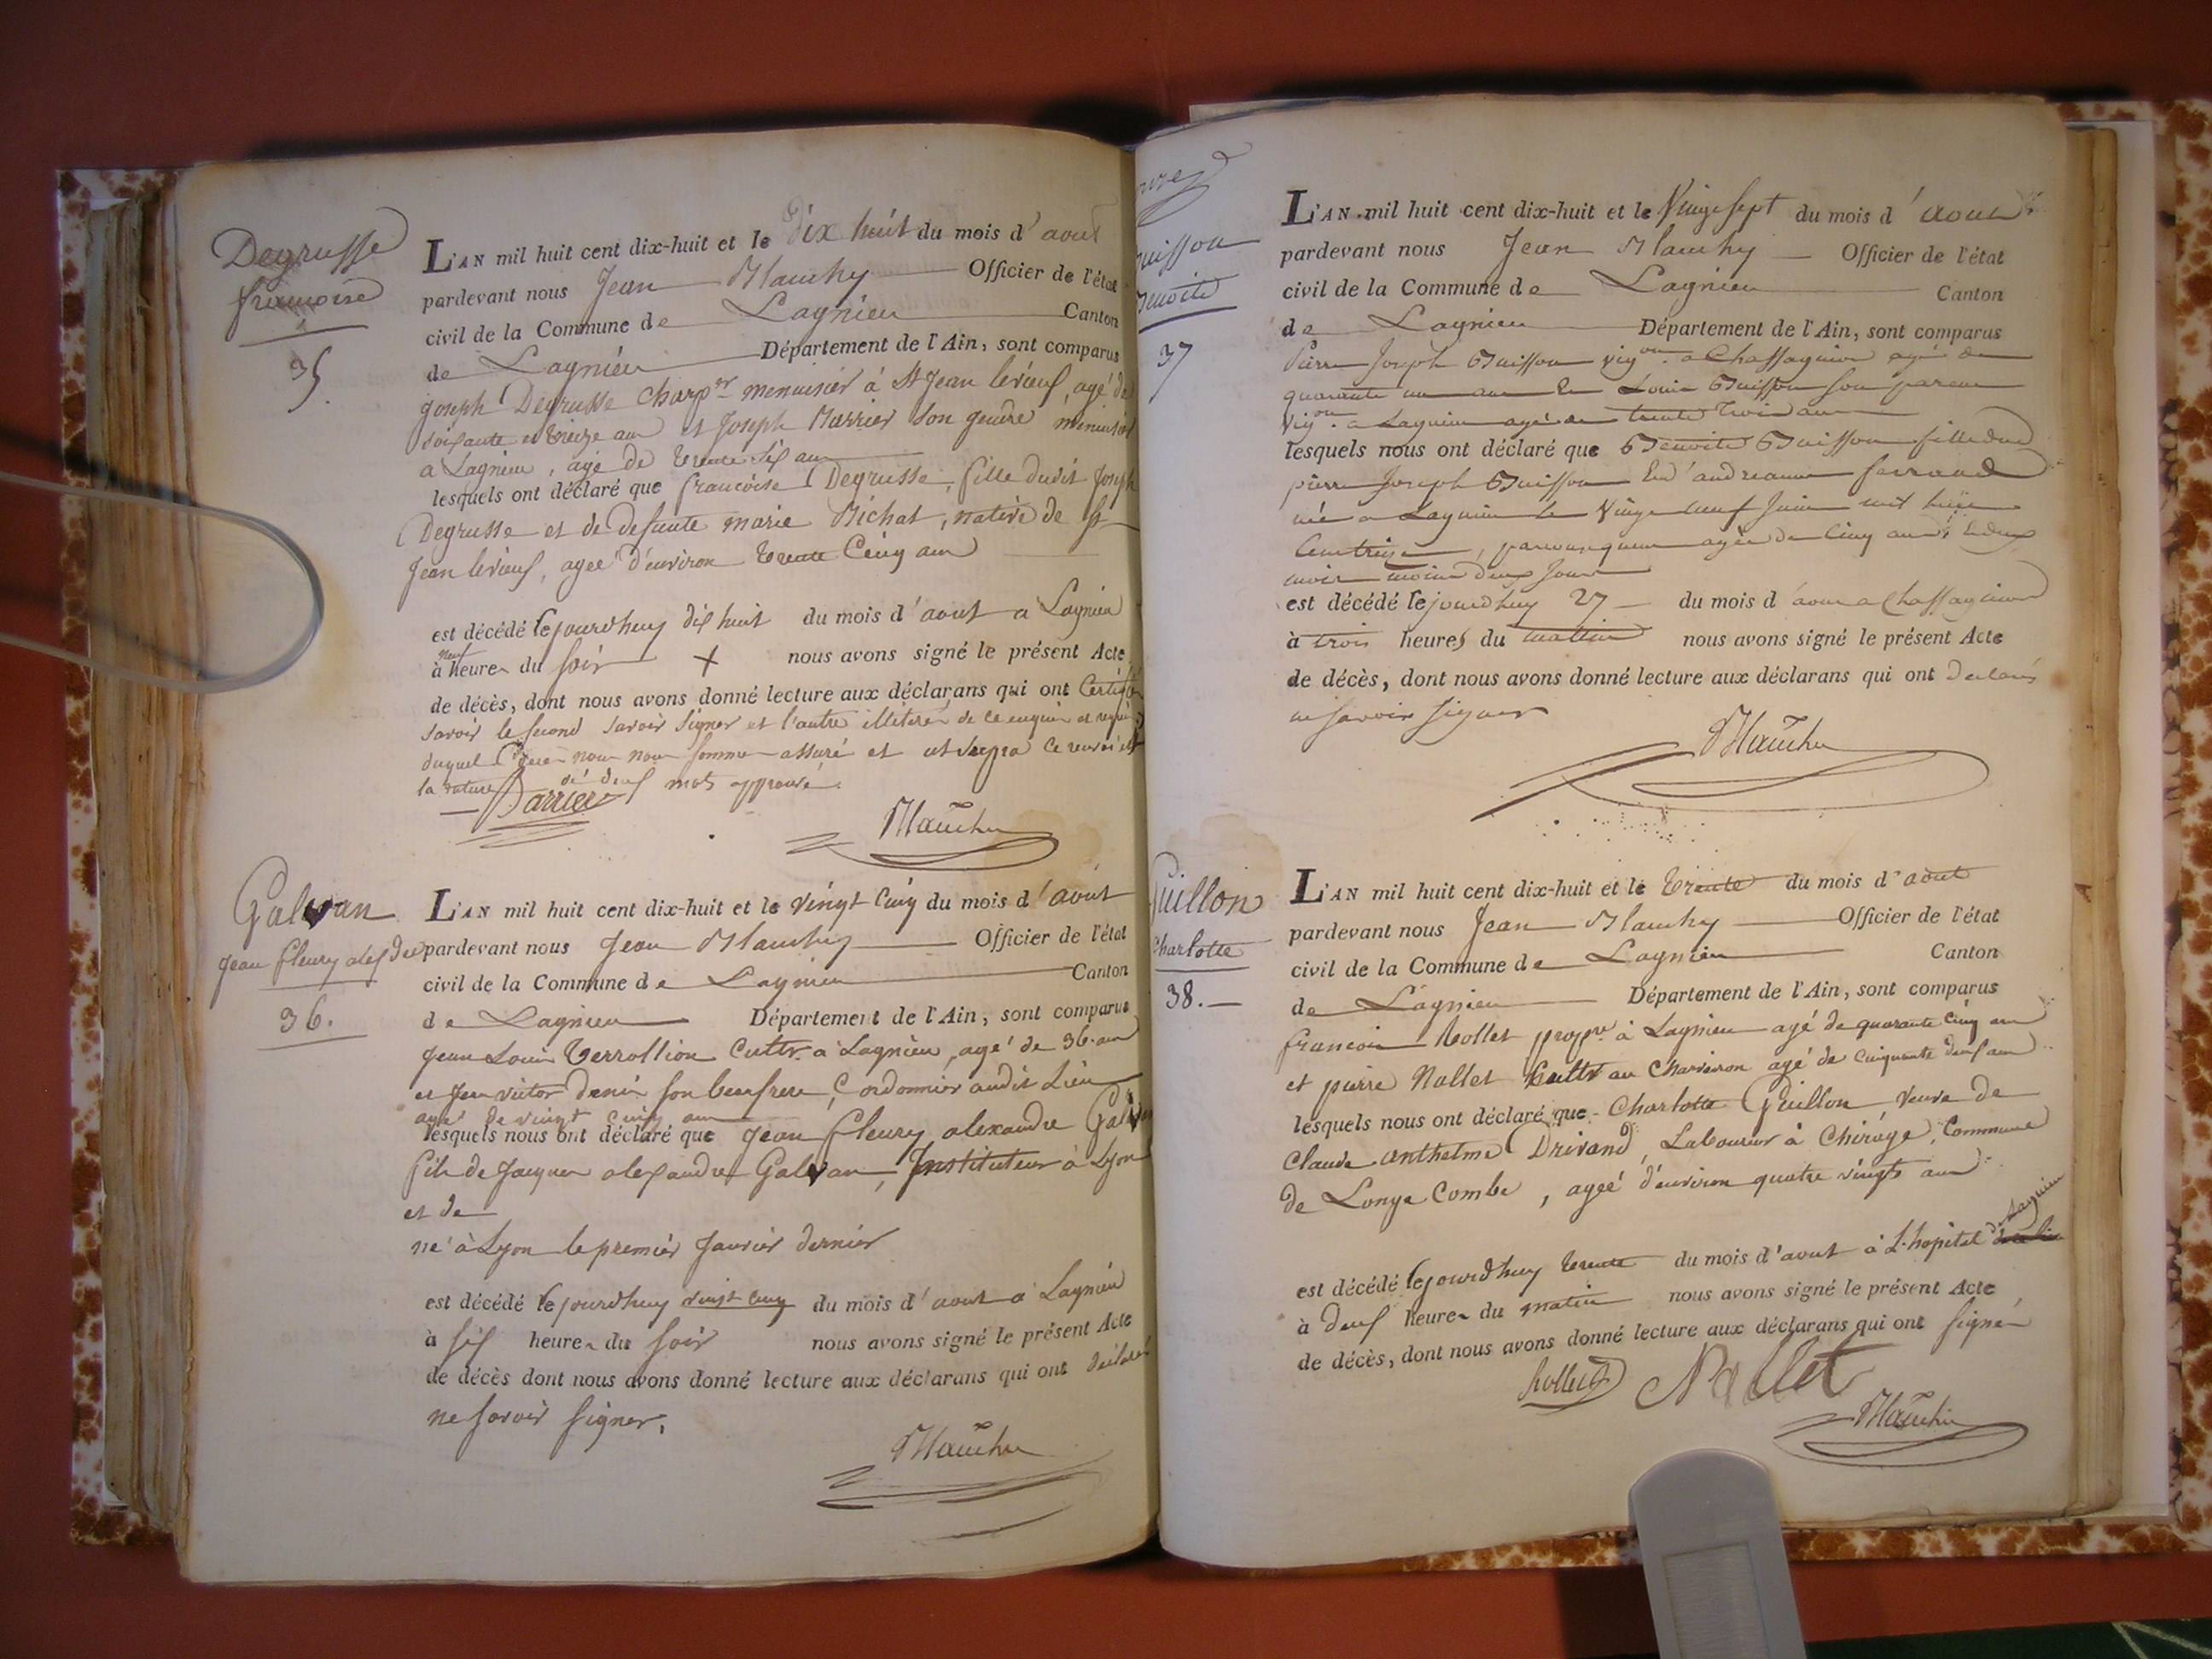 Degrusse
francoise
35.
L'AN mil huit cent dix-huit et le dix huit du mois d'aout
pardevant nous Jean Blanchy Officier de l'état
civil de la Commune de Lagnieu Canton
de Lagnieu Département de l'Ain, sont comparus
joseph Degrusse charp.er menuisier à St Jean levieux, agé de
soixante et treize ans et Joseph Barrier son gendre menuisier
a Lagnieu, agé de trente six ans
lesquels ont déclaré que francoise Degrusse, fille dudit Joseph
Degrusse et de defunte marie Bichat, native de St
Jean levieux, agée d'environ trente Cinq ans
est décédé le jourdhuy dix huit du mois d'aout a Lagnieu
neuf
à heures du soir + nous avons signé le présent Acte
de décès, dont nous avons donné lecture aux déclarans qui ont
savoir le second savoir signer et l'autre illiteré de ce enquis et requis
duquel nous nous sommes assuré et ce renvoi et
la rature de deux mots approuvé.
Barrier
Blanchy
Galvan
Jean fleury alexdre
36.
L'AN mil huit cent dix-huit et le vingt Cinq du mois d'aout
pardevant nous Jean Blanchy Officier de l'état
civil de la Commune de Lagnieu Canton
de Lagnieu Département de l'Ain, sont comparus
Jean Louis Verrollion Cultr. a Lagnieu, agé de 36. ans
et Jean victor denis son beaufrere, Cordonnier audit Lieu
agé de vingt cinq ans
lesquels nous ont déclaré que Jean fleury alexandre Galvan
fils de Jacques alexandre Galvan, Instituteur à Lyon
et de
né à Lyon le premier Janvier dernier
est décédé le jourdhuy vingt cinq du mois d'aout a Lagnieu
à six heures du soir nous avons signé le présent Acte
de décès dont nous avons donné lecture aux déclarans qui ont déclaré
ne savoir signer.
Blanchy
uisson
Benoite
37
L'AN mil huit cent dix-huit et le Vingt sept du mois d'aout
pardevant nous Jean Blanchy Officier de l'état
civil de la Commune de Lagnieu Canton
de Lagnieu Département de l'Ain, sont comparus
Pierre Joseph Buisson vig.on a Chassagnion agé de
quarante un ans et Louis Buisson son parent
Vig.on a Lagnieu agé de trente trois ans
lesquels nous ont déclaré que Benoite Buisson fille dud
pierre Joseph Buisson et d'andreanne ferrand
née a Lagnieu le Vingt neuf Juin mil huit
Cent treize, par conséquent agée de Cinq ans et deux
mois moins deux jours
est décédé le jourdhuy 27 du mois d'aout a Chassagnion
à trois heures du matin nous avons signé le présent Acte
de décès, dont nous avons donné lecture aux déclarans qui ont declarés
ne savoir signer
Blanchy
Guillon
Charlotte
38.
L'AN mil huit cent dix-huit et le trente du mois d'aout
pardevant nous Jean Blanchy Officier de l'état
civil de la Commune de Lagnieu Canton
de Lagnieu Département de l'Ain, sont comparus
francois Rollet propre. à Lagnieu agé de quarante cinq ans
et pierre Nallet Cultr au Charveron agé de cinquante deux ans
lesquels nous ont déclaré que Charlotte Guillon, veuve de
Claude anthelme Drivand, Laboureur à Chiraye, Commune
de Longe Combe, ageé d'environ quatre vingts ans
Lagnieu
est décédé le jourdhuy trente du mois d'aout à L'hopital de
à deux heures du matin nous avons signé le présent Acte
de décès, dont nous avons donné lecture aux déclarans qui ont signé
Rollet Nallet
Blanchy